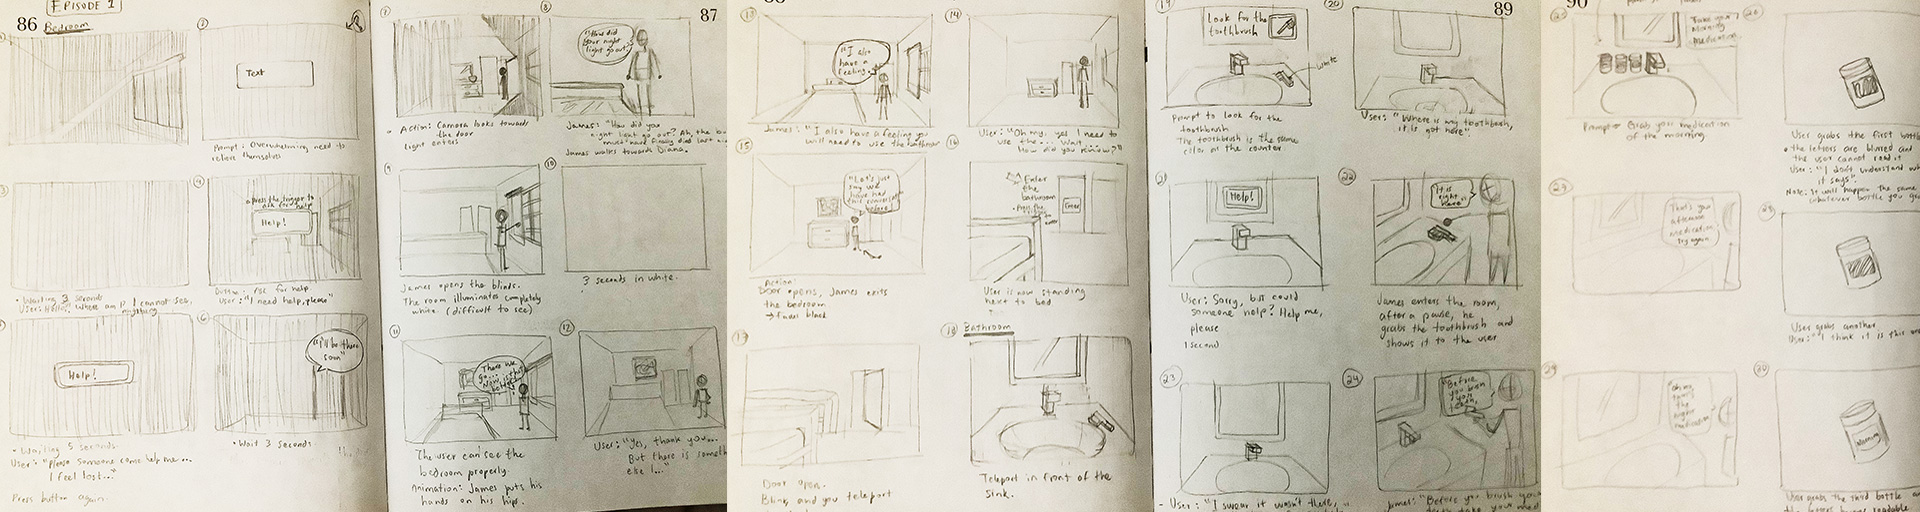 EPISODE 1
86 Bedroom
2
Text
Prompt: Overwhelming need to
relieve themselves
3
• Waiting 3 seconds
User: Hello, Where am I? I cannot see
anything
4
press the trigger to
ask for help
Help!
Ask for help.
User: "I need help, please"
Help!
• Waiting 5 seconds
User: "Please someone come help me...
I feel lost..."
Press button again.
6
"I'll be there
soon"
• Wait 3 seconds
87
7
Action: Camera looks towards
the door
Light enters
8
"How did
your night
light go out?"
James: "How did you
night light go out? Ah, the
must have finally died last
James walks towards Diana.
9
James opens the blinds.
The room illuminates completely
white (difficult to see)
10
3 seconds in white.
11
There we
go...
The user can see the
bedroom properly.
Animation: James puts his
hands on his hips.
12
User: "Yes, thank you...
But there is
else I..."
13
"I also
have a
feeling
James: "I also have a feeling you
will need to use the bathroom
14
User: "Oh my, yes I need to
use the... Wait
How did you know?"
15
"Let's just
say we
have had
this conversation
before"
Action:
Door opens, James exits
the bedroom
→ Fades black
16
Enter
the
bathroom
Enter
User is now standing
next to bed
17
Door open.
Blink, and you teleport
18 Bathroom
Teleport in front of the
sink.
89
19
Look for the
toothbrush
white
Prompt to look for the
toothbrush
The toothbrush is the same
color as the counter
20
User: "Where is my toothbrush,
it is not here"
21
Help!
User: Sorry, but could
someone help? Help me,
please
1 second
22
It is
right
here"
James enters the room,
after a pause, he
grabs the toothbrush and
shows it to the user
23
- User: "I swear it wasn't there,
24
"Before
you brush
your
teeth,
James: "Before you brush your
90
Take your
morning
medication
Prompt: Grab your medication
of the morning
User grabs the first bottle
• the letters are blurred and
the user cannot read it
User: "I don't understand
it says"
Note: It will happen the same
whatever bottle you grab
That's your
afternoon
medication,
try again
28
User grabs another
User: "I think it is this
29
Oh my,
that's
the
night
medication
30
Morning
User grabs the third bottle